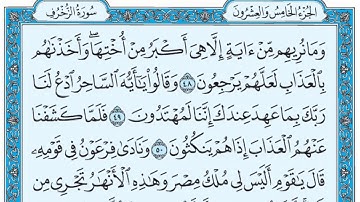 الجزء الخامس والعشرون سورة الزخرف
وَمَا نُرِيهِم مِّنْ ءَايَةٍ إِلَّا هِيَ أَكْبَرُ مِنْ أُخْتِهَا ۖ وَأَخَذْنَٰهُم
بِٱلْعَذَابِ لَعَلَّهُمْ يَرْجِعُونَ ٤٨ وَقَالُوا۟ يَٰٓأَيُّهَ ٱلسَّاحِرُ ٱدْعُ لَنَا
رَبَّكَ بِمَا عَهِدَ عِندَكَ إِنَّنَا لَمُهْتَدُونَ ٤٩ فَلَمَّا كَشَفْنَا
عَنْهُمُ ٱلْعَذَابَ إِذَا هُمْ يَنكُثُونَ ٥٠ وَنَادَىٰ فِرْعَوْنُ فِي قَوْمِهِۦ
قَالَ يَٰقَوْمِ أَلَيْسَ لِي مُلْكُ مِصْرَ وَهَٰذِهِ ٱلْأَنْهَٰرُ تَجْرِي مِن